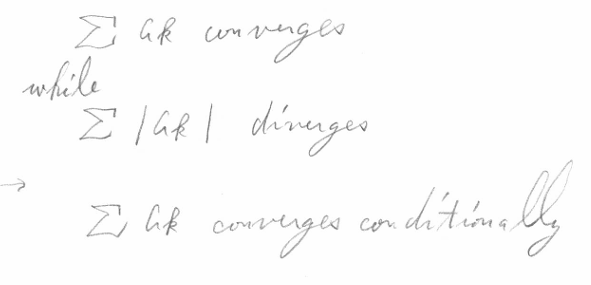 ∑ ak converges
while
∑ |ak| diverges
→
∑ ak converges conditionally